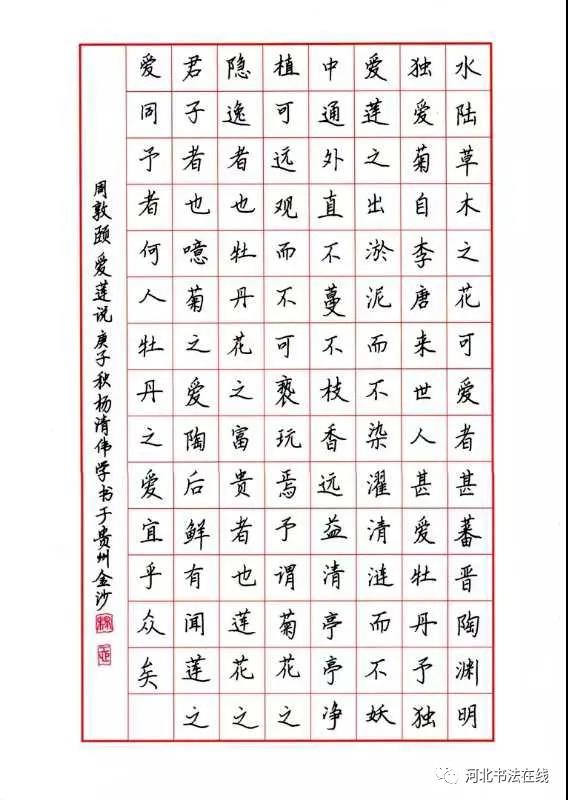 水陆草木之花可爱者甚蕃晋陶渊明
独爱菊自李唐来世人甚爱牡丹予独
爱莲之出淤泥而不染濯清涟而不妖
中通外直不蔓不枝香远益清亭亭净
植可远观而不可亵玩焉予谓菊花之
隐逸者也牡丹花之富贵者也莲花之
君子者也噫菊之爱陶后鲜有闻莲之
爱同予者何人牡丹之爱宜乎众矣
周敦颐爱莲说庚子秋杨清伟学书于贵州金沙
河北书法在线